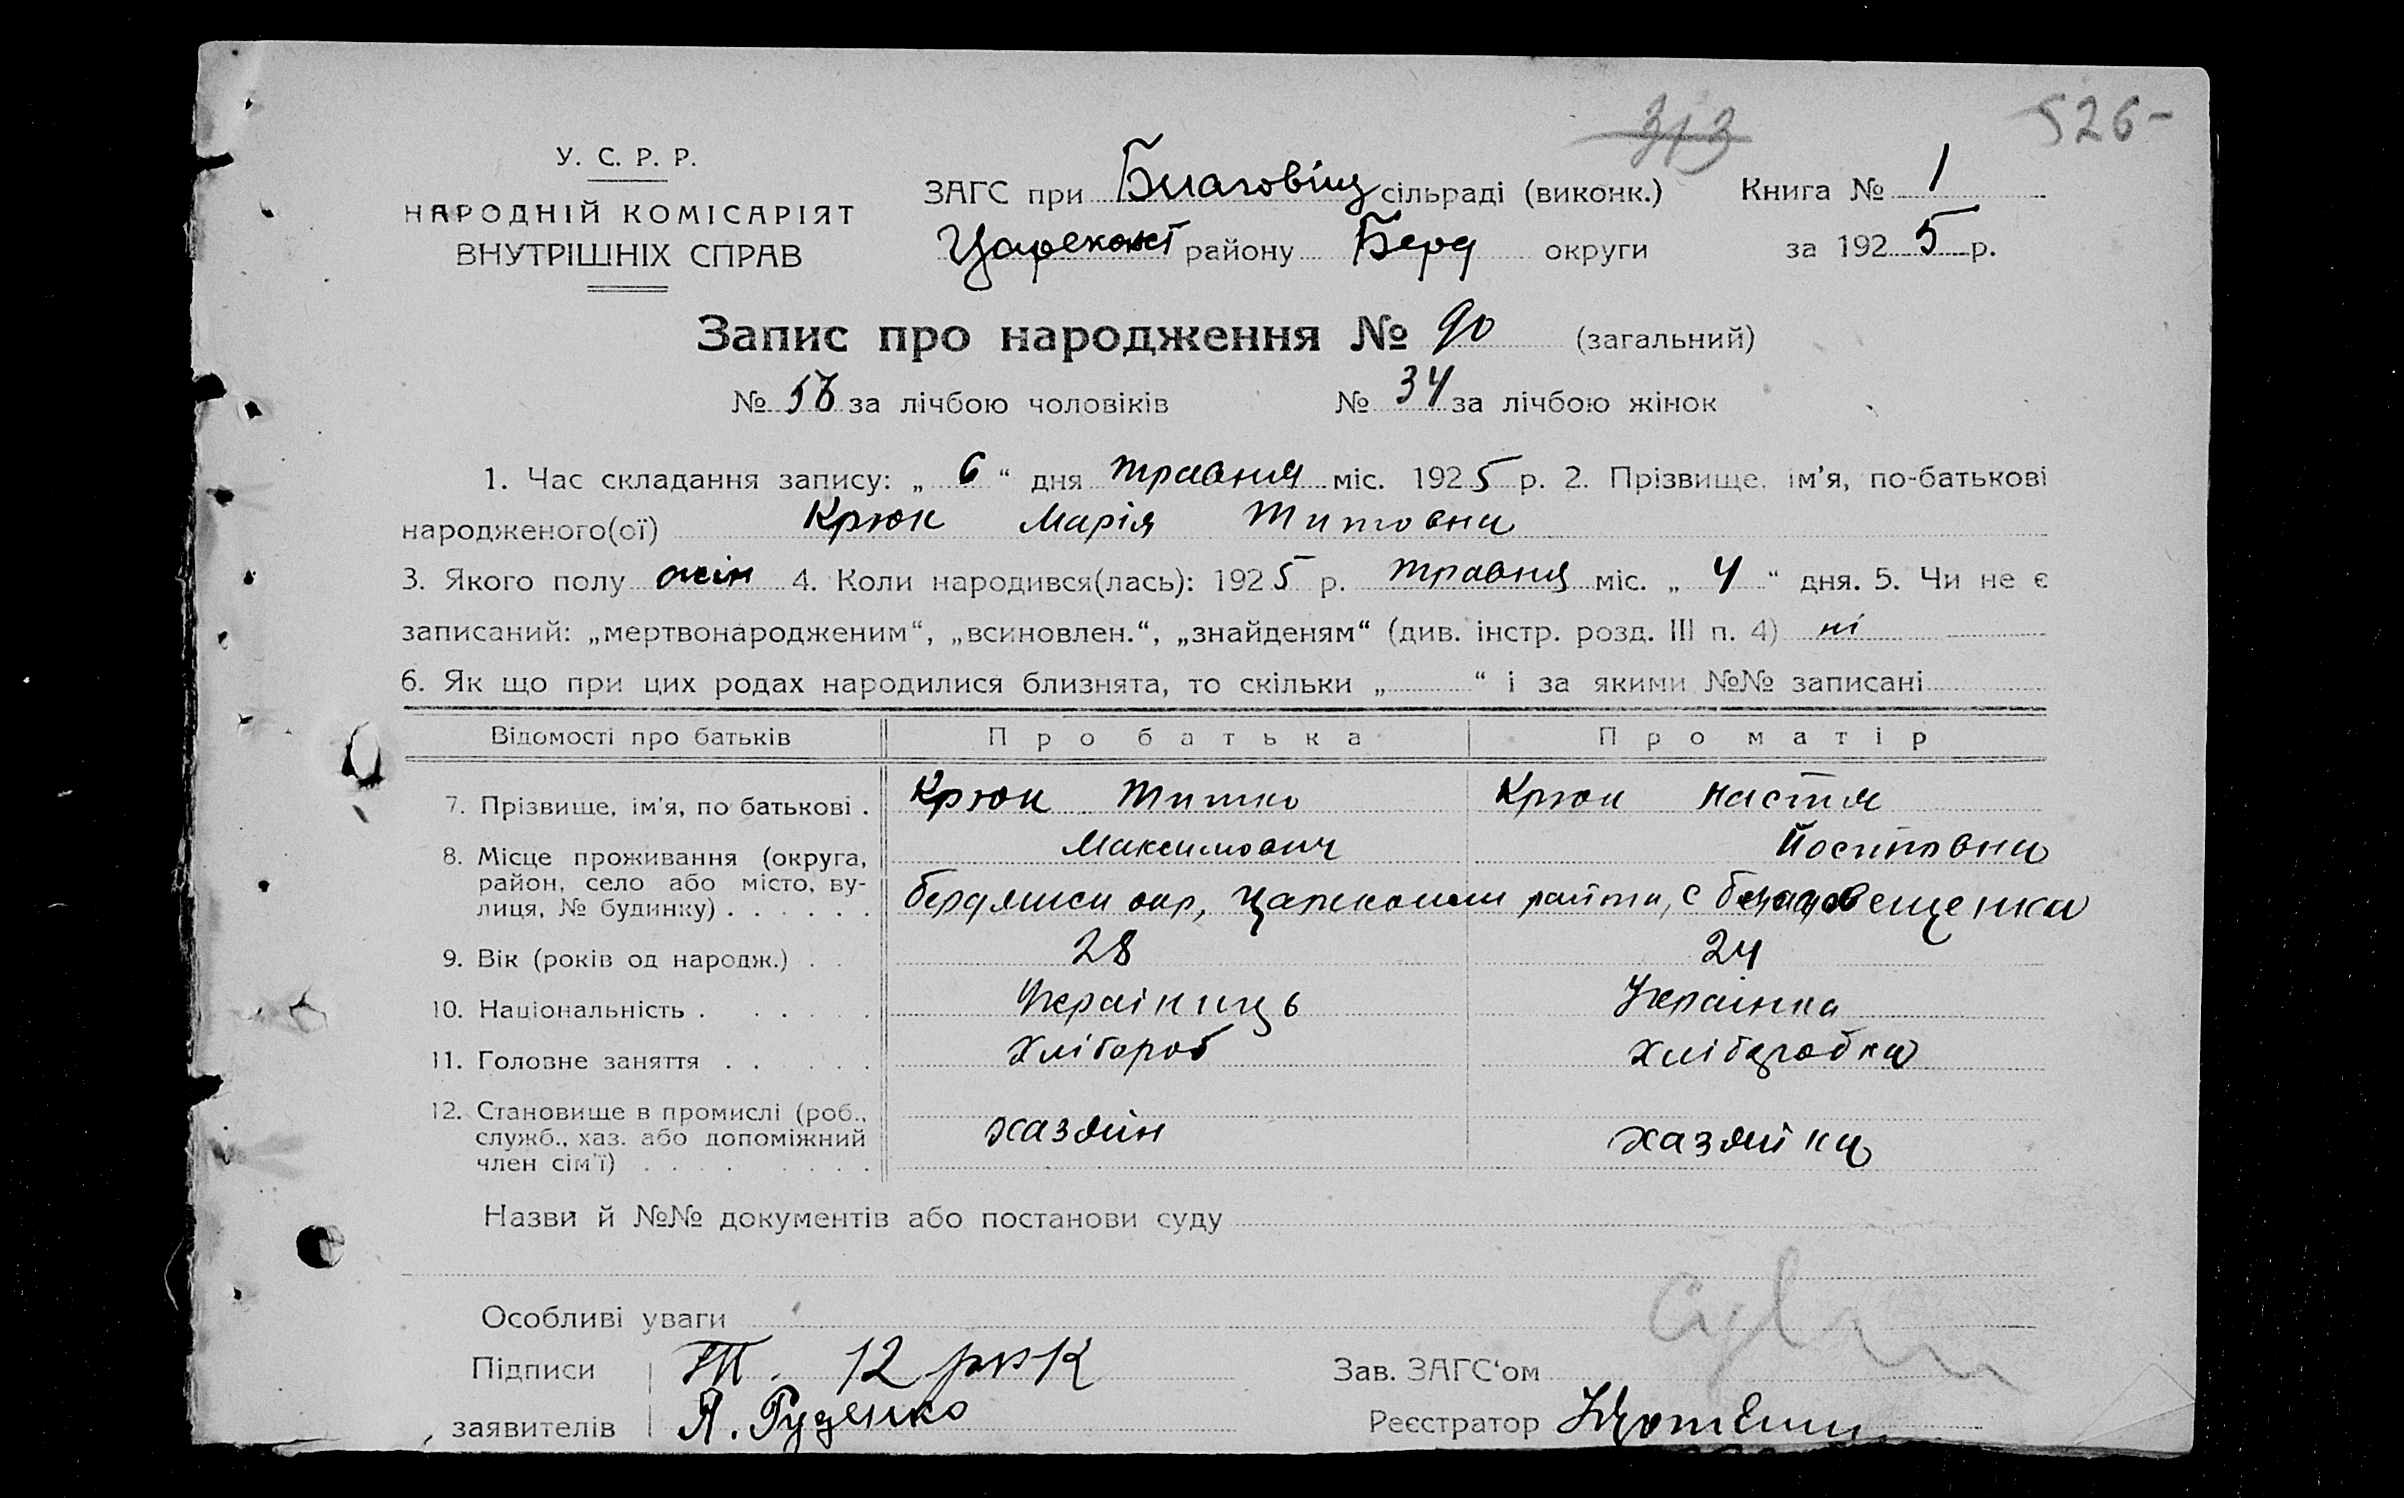 313
526-
У. С. Р. Р.
НАРОДНІЙ КОМІСАРІЯТ
ВНУТРІШНІХ СПРАВ
ЗАГС при Благовіщ сільраді (виконк.) Книга № 1
Цареконст району Берд округи за 1925 р.
Запис про народження № 90 (загальний)
№ 56 за лічбою чоловіків № 34 за лічбою жінок
1. Час складання запису: „ 6 “ дня травня міс. 1925 р. 2. Прізвище, ім'я, по-батькові
народженого(ої) Крюк Марія Титовна
3. Якого полу жін 4. Коли народився(лась): 1925 р. травня міс. „ 4 “ дня. 5. Чи не є
записаний: „мертвонародженим“, „всиновлен.“, „знайденям“ (див. інстр. розд. III п. 4) ні
6. Як що при цих родах народилися близнята, то скільки „ “ і за якими №№ записані
Відомості про батьків Про батька Про матір
7. Прізвище, ім'я, по батькові . Крюк Титко Крюк Настя
Максимович
8. Місце проживання (округа, район, село або місто, ву-
лиця, № будинку) . . . . . . окр, с
9. Вік (років од народж.) . . 28 24
10. Національність . . . . . . Украіниць Украінка
11. Головне заняття . . . . . Хлібороб Хліборобка
12. Становище в промислі (роб.,
служб., хаз. або допоміжний
член сім'ї) . . . . . . . . хазяін хазяйка
Назви й №№ документів або постанови суду
Особливі уваги
Підписи Т. Крюк Зав. ЗАГС'ом
заявителів Я. Руденко Реєстратор